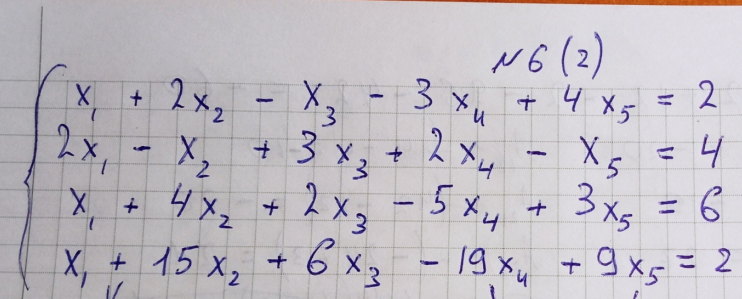 №6 (2)
x₁ + 2x₂ - x₃ - 3x₄ + 4x₅ = 2
2x₁ - x₂ + 3x₃ + 2x₄ - x₅ = 4
x₁ + 4x₂ + 2x₃ - 5x₄ + 3x₅ = 6
x₁ + 15x₂ + 6x₃ - 19x₄ + 9x₅ = 2